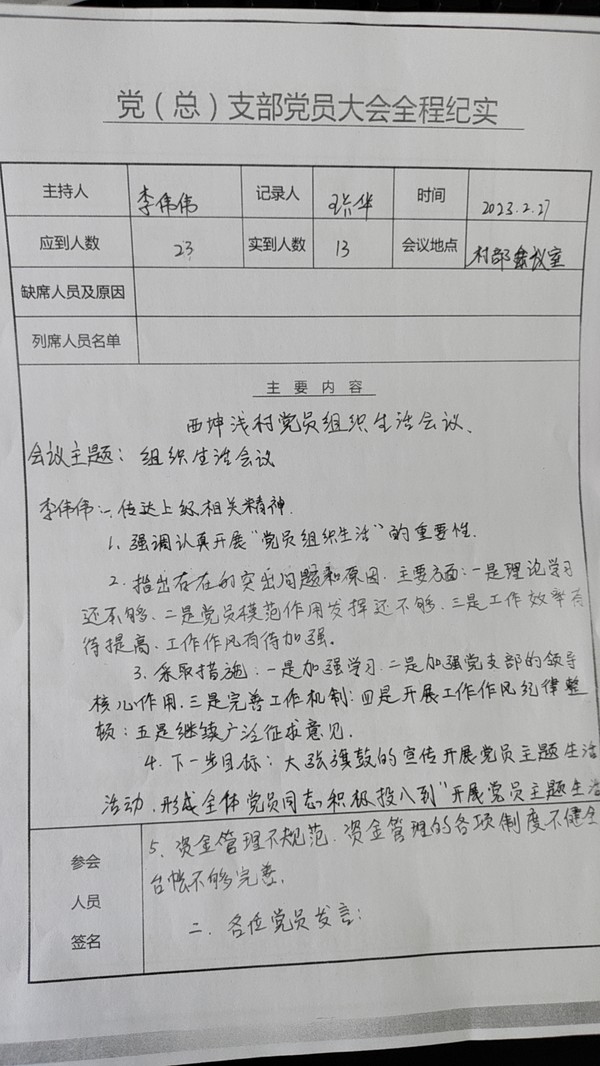 党（总）支部党员大会全程纪实
主持人 李伟伟 记录人 华 时间 2023.2.27
应到人数 23 实到人数 13 会议地点 村部会议室
缺席人员及原因
列席人员名单
主要内容
西坤浅村党员组织生活会议、
会议主题：组织生活会议
李伟伟：一、传达上级相关精神.
1、强调认真开展“党员组织生活”的重要性.
2、指出存在的突出问题和原因．主要方面：一是理论学习
还不够、二是党员模范作用发挥还不够、三是工作效率有
待提高、工作作风有待加强.
3、采取措施：一是加强学习、二是加强党支部的领导
核心作用、三是完善工作机制：四是开展工作作风纪律整
顿：五是继续广泛征求意见.
4、下一步目标：大张旗鼓的宣传开展党员主题生活
活动、形成全体党员同志积极投入到“开展党员主题生活
参会人员签名
5、资金管理不规范、资金管理的各项制度不健全
台帐不够完善.
二、各位党员发言：